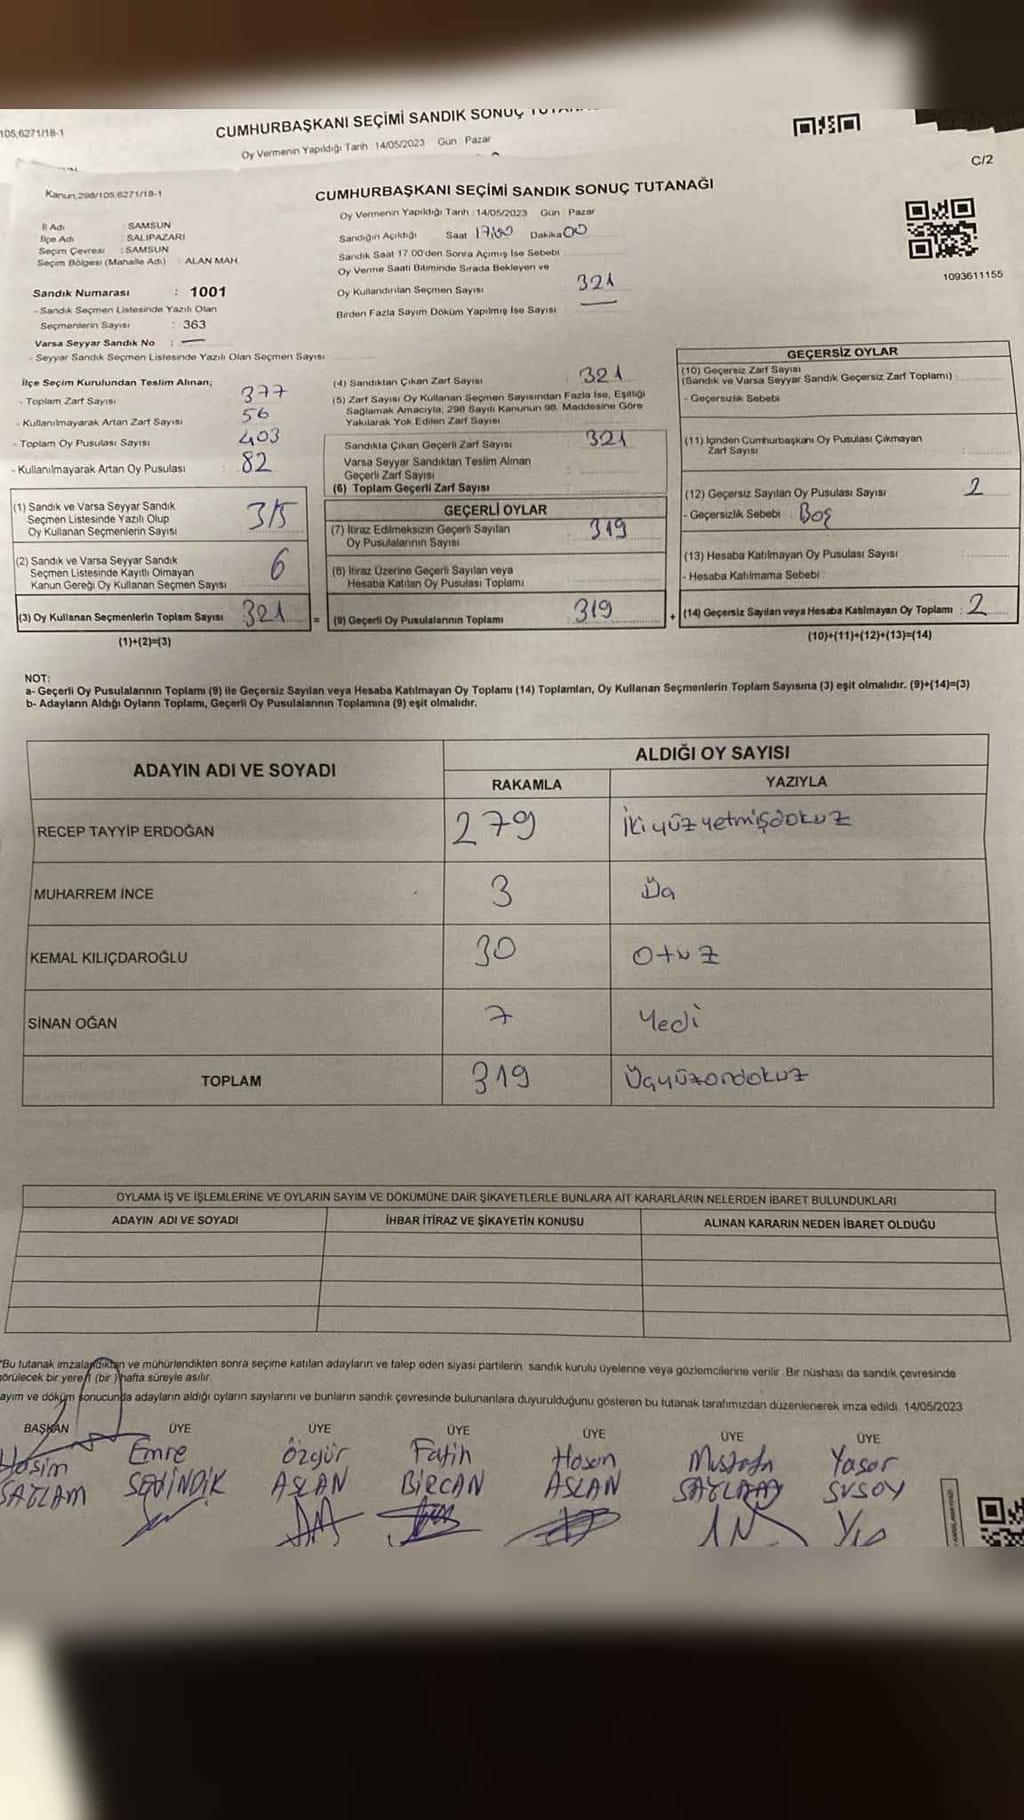 105,6271/18-1
CUMHURBAŞKANI SEÇİMİ SANDIK SONUÇ
Oy Vermenin Yapıldığı Tarih : 14/05/2023 Gün : Pazar
C/2
Kanun, 298/105,6271/18-1
CUMHURBAŞKANI SEÇİMİ SANDIK SONUÇ TUTANAĞI
Oy Vermenin Yapıldığı Tarih : 14/05/2023 Gün : Pazar
İl Adı : SAMSUN
İlçe Adı : SALIPAZARI
Seçim Çevresi : SAMSUN
Seçim Bölgesi (Mahalle Adı) : ALAN MAH.
Sandığın Açıldığı Saat 17:00 Dakika 00
Sandık Saat 17.00'den Sonra Açımış İse Sebebi :
Oy Verme Saati Bitiminde Sırada Bekleyen ve
Oy Kullandırılan Seçmen Sayısı : 321
Birden Fazla Sayım Döküm Yapılmış İse Sayısı : —
1093611155
Sandık Numarası : 1001
- Sandık Seçmen Listesinde Yazılı Olan
Seçmenlerin Sayısı : 363
Varsa Seyyar Sandık No : —
- Seyyar Sandık Seçmen Listesinde Yazılı Olan Seçmen Sayısı :
İlçe Seçim Kurulundan Teslim Alınan;
- Toplam Zarf Sayısı : 377
- Kullanılmayarak Artan Zarf Sayısı : 56
- Toplam Oy Pusulası Sayısı : 403
- Kullanılmayarak Artan Oy Pusulası : 82
(1) Sandık ve Varsa Seyyar Sandık
Seçmen Listesinde Yazılı Olup
Oy Kullanan Seçmenlerin Sayısı : 315
(2) Sandık ve Varsa Seyyar Sandık
Seçmen Listesinde Kayıtlı Olmayan
Kanun Gereği Oy Kullanan Seçmen Sayısı : 6
(3) Oy Kullanan Seçmenlerin Toplam Sayısı : 321 =
(1)+(2)=(3)
(4) Sandıktan Çıkan Zarf Sayısı : 321
(5) Zarf Sayısı Oy Kullanan Seçmen Sayısından Fazla İse, Eşitliği
Sağlamak Amacıyla; 298 Sayılı Kanunun 98. Maddesine Göre
Yakılarak Yok Edilen Zarf Sayısı :
Sandıkta Çıkan Geçerli Zarf Sayısı : 321
Varsa Seyyar Sandıktan Teslim Alınan
Geçerli Zarf Sayısı :
(6) Toplam Geçerli Zarf Sayısı :
GEÇERLİ OYLAR
(7) İtiraz Edilmeksizin Geçerli Sayılan
Oy Pusulalarının Sayısı : 319
(8) İtiraz Üzerine Geçerli Sayılan veya
Hesaba Katılan Oy Pusulası Toplamı :
(9) Geçerli Oy Pusulalarının Toplamı : 319 +
GEÇERSİZ OYLAR
(10) Geçersiz Zarf Sayısı
(Sandık ve Varsa Seyyar Sandık Geçersiz Zarf Toplamı) :
- Geçersizlik Sebebi :
(11) İçinden Cumhurbaşkanı Oy Pusulası Çıkmayan
Zarf Sayısı :
(12) Geçersiz Sayılan Oy Pusulası Sayısı : 2
- Geçersizlik Sebebi : Boş
(13) Hesaba Katılmayan Oy Pusulası Sayısı :
- Hesaba Katılmama Sebebi :
(14) Geçersiz Sayılan veya Hesaba Katılmayan Oy Toplamı : 2
(10)+(11)+(12)+(13)=(14)
NOT:
a- Geçerli Oy Pusulalarının Toplamı (9) ile Geçersiz Sayılan veya Hesaba Katılmayan Oy Toplamı (14) Toplamları, Oy Kullanan Seçmenlerin Toplam Sayısına (3) eşit olmalıdır. (9)+(14)=(3)
b- Adayların Aldığı Oyların Toplamı, Geçerli Oy Pusulalarının Toplamına (9) eşit olmalıdır.
ADAYIN ADI VE SOYADI
ALDIĞI OY SAYISI
RAKAMLA YAZIYLA
RECEP TAYYİP ERDOĞAN 279 İki yüz yetmişdokuz
MUHARREM İNCE 3 Üç
KEMAL KILIÇDAROĞLU 30 Otuz
SİNAN OĞAN 7 Yedi
TOPLAM 319 Üçyüzondokuz
OYLAMA İŞ VE İŞLEMLERİNE VE OYLARIN SAYIM VE DÖKÜMÜNE DAİR ŞİKAYETLERLE BUNLARA AİT KARARLARIN NELERDEN İBARET BULUNDUKLARI
ADAYIN ADI VE SOYADI İHBAR İTİRAZ VE ŞİKAYETİN KONUSU ALINAN KARARIN NEDEN İBARET OLDUĞU
*Bu tutanak imzalandıktan ve mühürlendikten sonra seçime katılan adayların ve talep eden siyasi partilerin sandık kurulu üyelerine veya gözlemcilerine verilir. Bir nüshası da sandık çevresinde
görülecek bir yere 1 (bir) hafta süreyle asılır.
ayım ve döküm sonucunda adayların aldığı oyların sayılarını ve bunların sandık çevresinde bulunanlara duyurulduğunu gösteren bu tutanak tarafımızdan düzenlenerek imza edildi. 14/05/2023
BAŞKAN ÜYE ÜYE ÜYE ÜYE ÜYE ÜYE
Hasim Emre Özgür Fatih Hasan Mustafa Yaşar
SAĞLAM SEVİNDİK ASLAN BİRCAN ASLAN SAĞLAM SUSOY